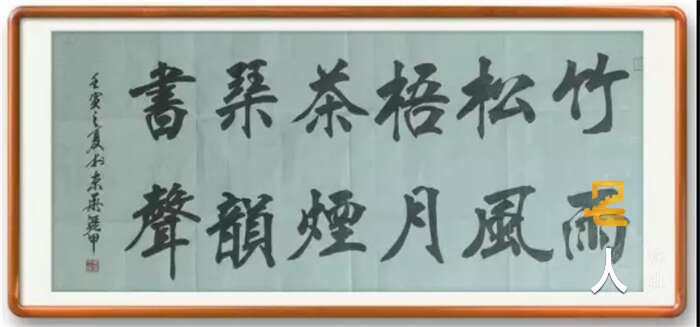 竹雨
松風
梧月
茶煙
琹韻
書聲
壬寅之夏於京
名人
辞典